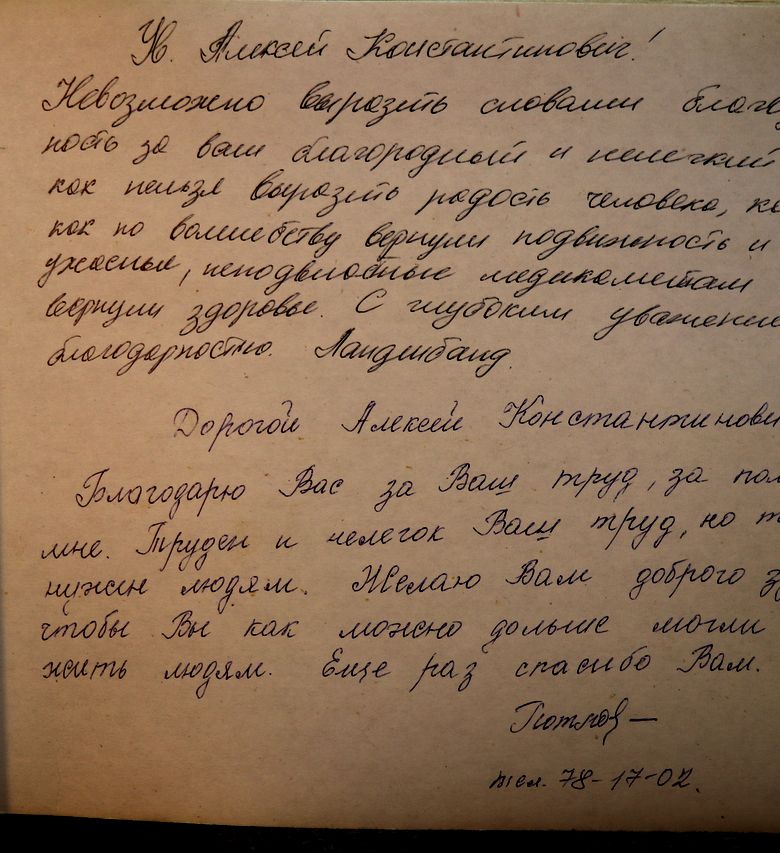 Ув. Алексей Константинович!
Невозможно выразить словами благод
ность за ваш благородный и нелегкий
как нельзя выразить радость человека, ко
как по волшебству вернули подвижность и
ужасные, неподвлобные медикаметам
вернули здоровье. С глубоким уважение
благодарностью.
Дорогой Алексей Константинови
Благодарю Вас за Ваш труд, за пом
мне. Труден и нелегок Ваш труд, но т
нужен людям. Желаю Вам доброго з
чтобы Вы как можно дольше могли
жить людям. Еще раз спасибо Вам.
тел. 78-17-02.